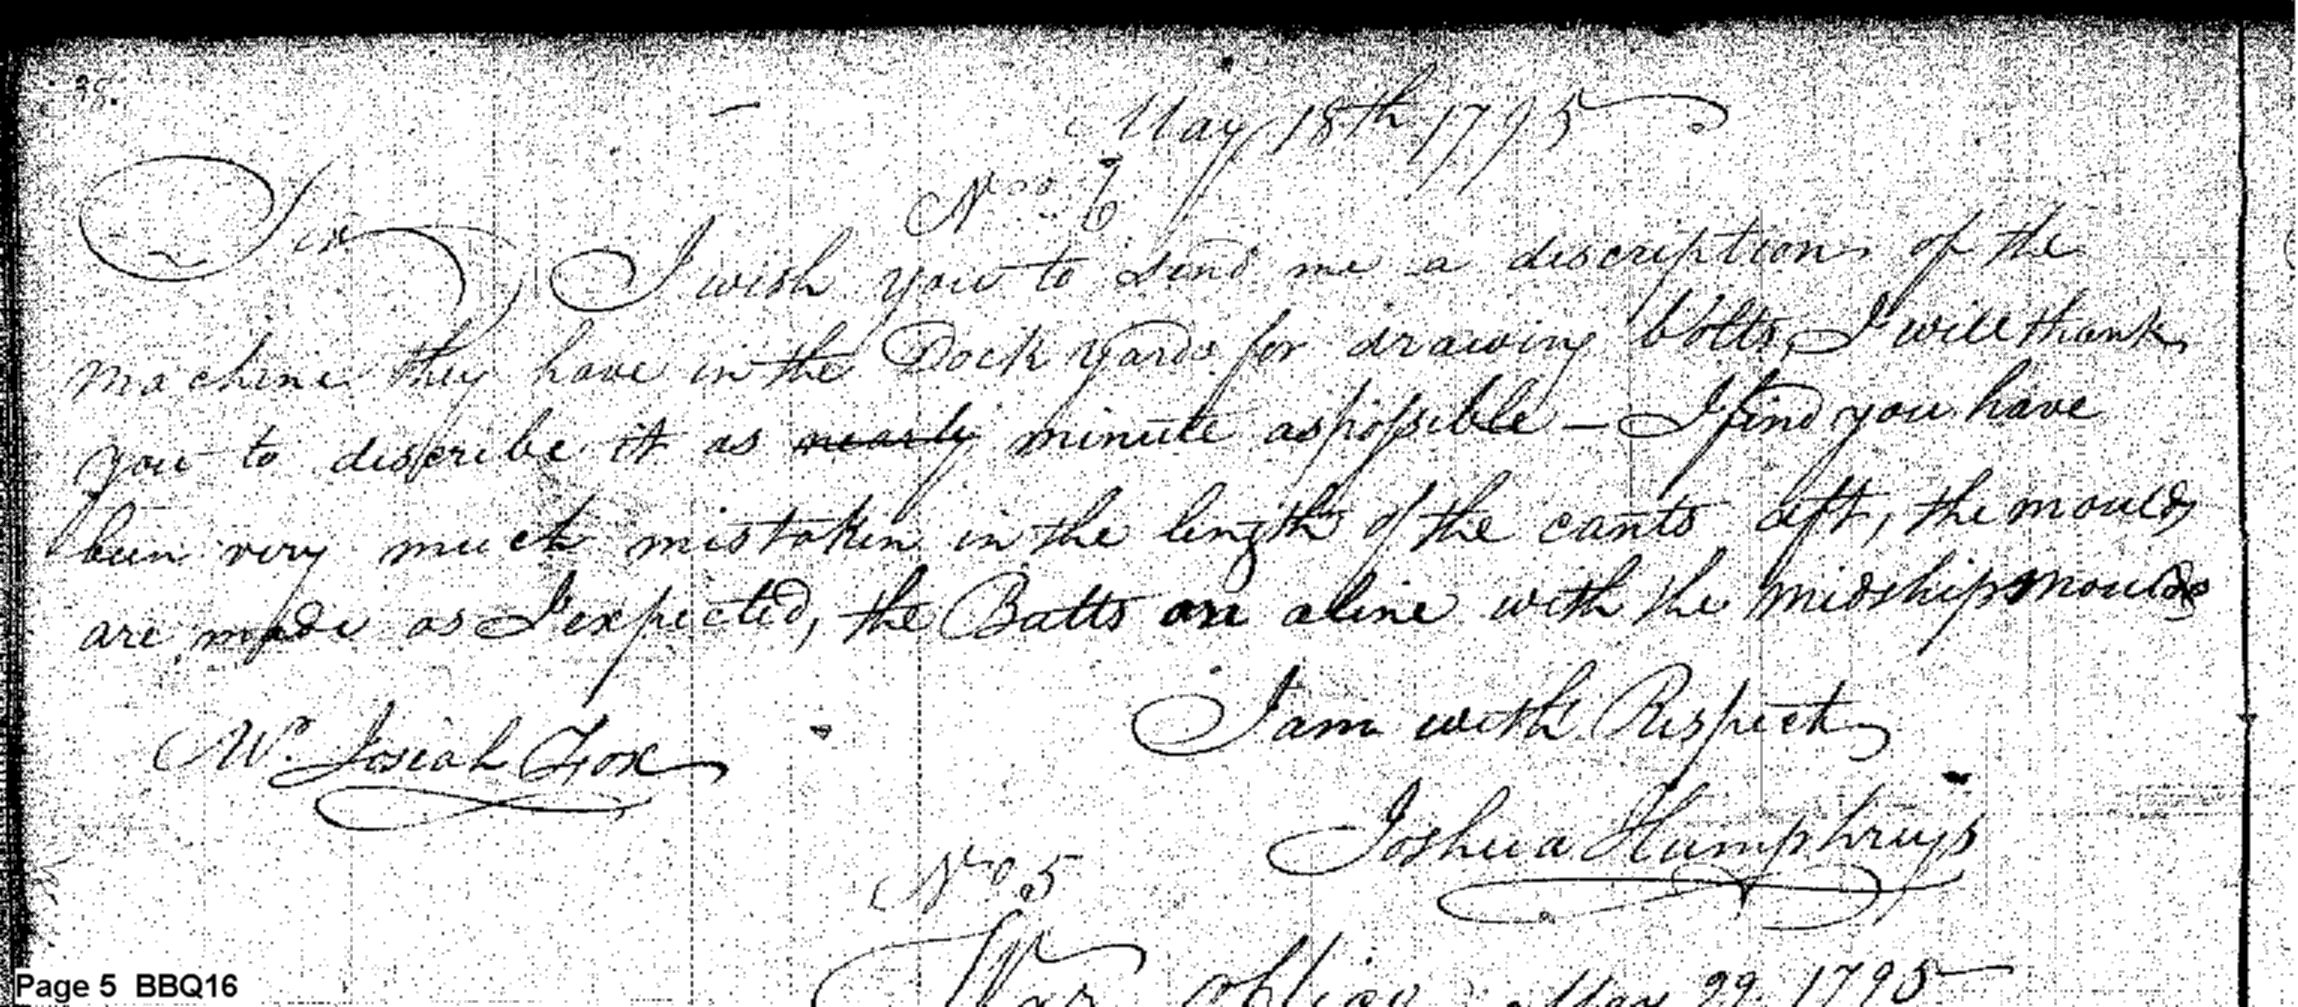 May 18th 1795
No. 6
Sir I wish you to send me a discription of the
machine they have in the Dock yards for drawing bolts, I will thank
you to discribe it as nearly minute as possible – I find you have
been very much mistaken in the length of the cants aft, the moulds
are made as I expected, the Batts are aline with the midship moulds
I am with Respect
Mr. Josiah Fox
Joshua Humphreys
No. 5
War office May 22. 1795
Page 5 BBQ16